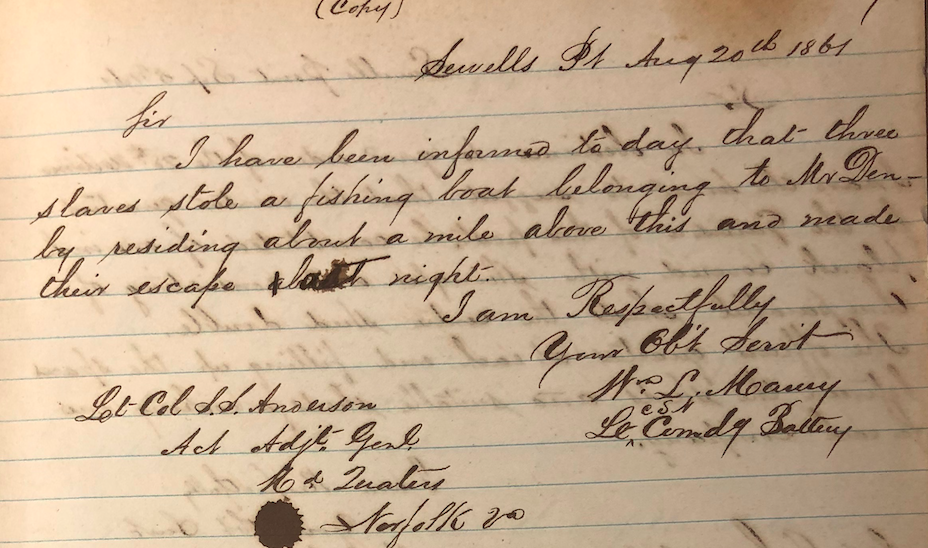 (Copy)
Sewells Pt Aug 20th 1861
Sir
I have been informed to day. that three
slaves stole a fishing boat belonging to Mr Den-
by residing about a mile above this and made
their escape last night.
I am Respectfully
Your Obt Servt
Wm L. Maury
CSN
Lt ^ Comdg Battery
Lt Col S.S. Anderson
Act Adjt. Genl
Hd Quaters
Norfolk Va